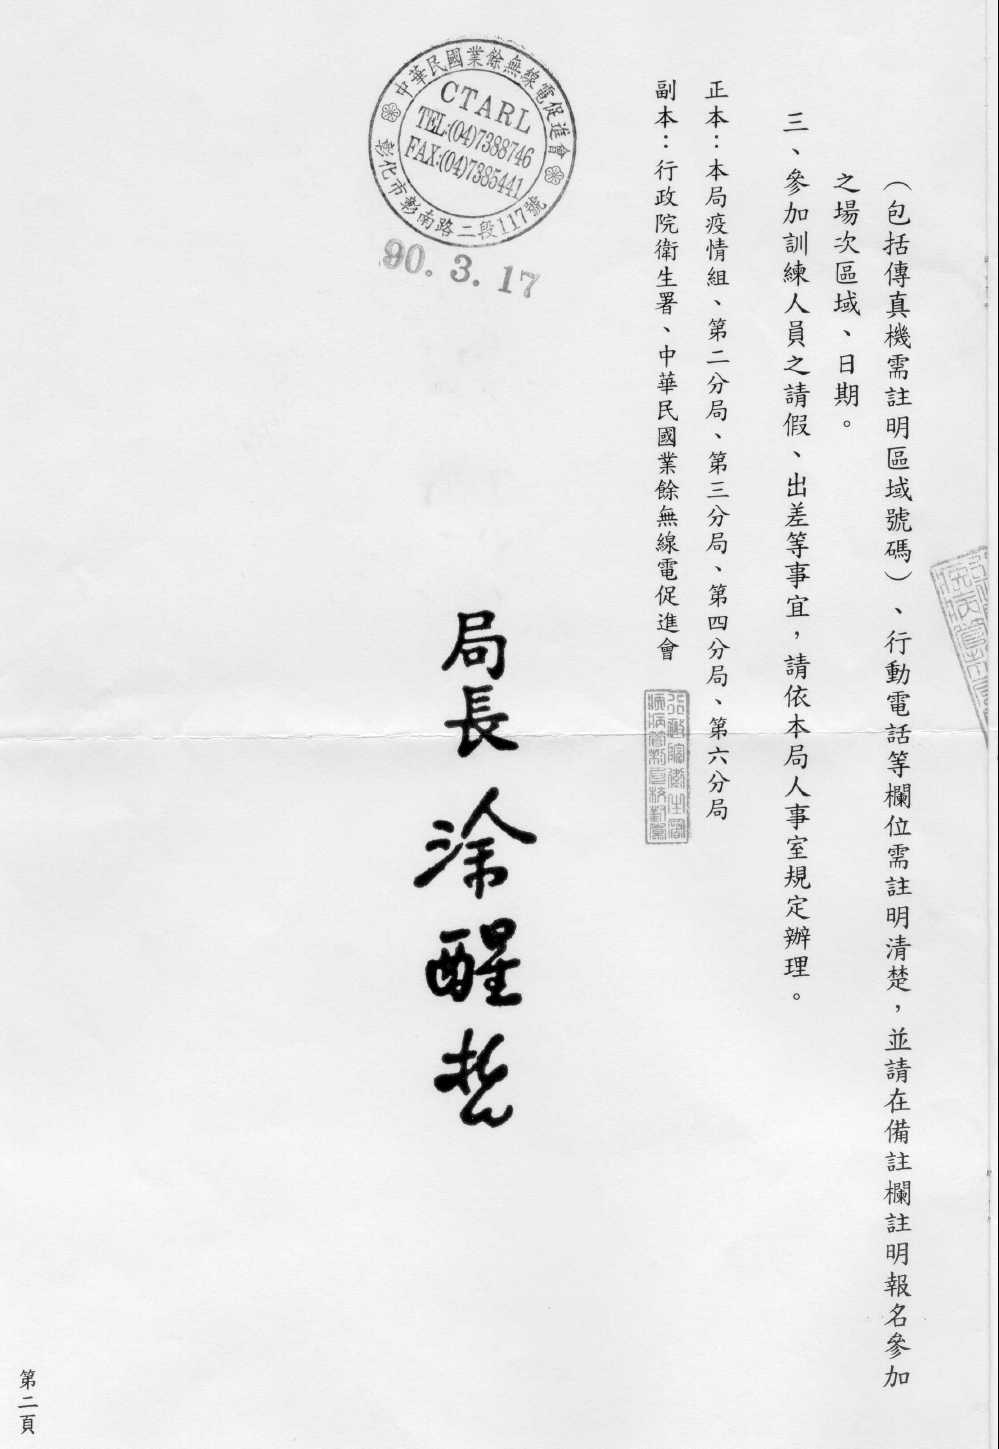 (包括傳真機需註明區域號碼)、行動電話等欄位需註明清楚，並請在備註欄註明報名參加
之場次區域、日期。
三、參加訓練人員之請假、出差等事宜，請依本局人事室規定辦理。
正本：本局疫情組、第二分局、第三分局、第四分局、第六分局
副本：行政院衛生署、中華民國業餘無線電促進會
局長 涂醒哲
中華民國業餘無線電促進會
CTARL
TEL:(04)7388746
FAX:(04)7385441
彰化市彰南路二段117號
90. 3. 17
第二頁